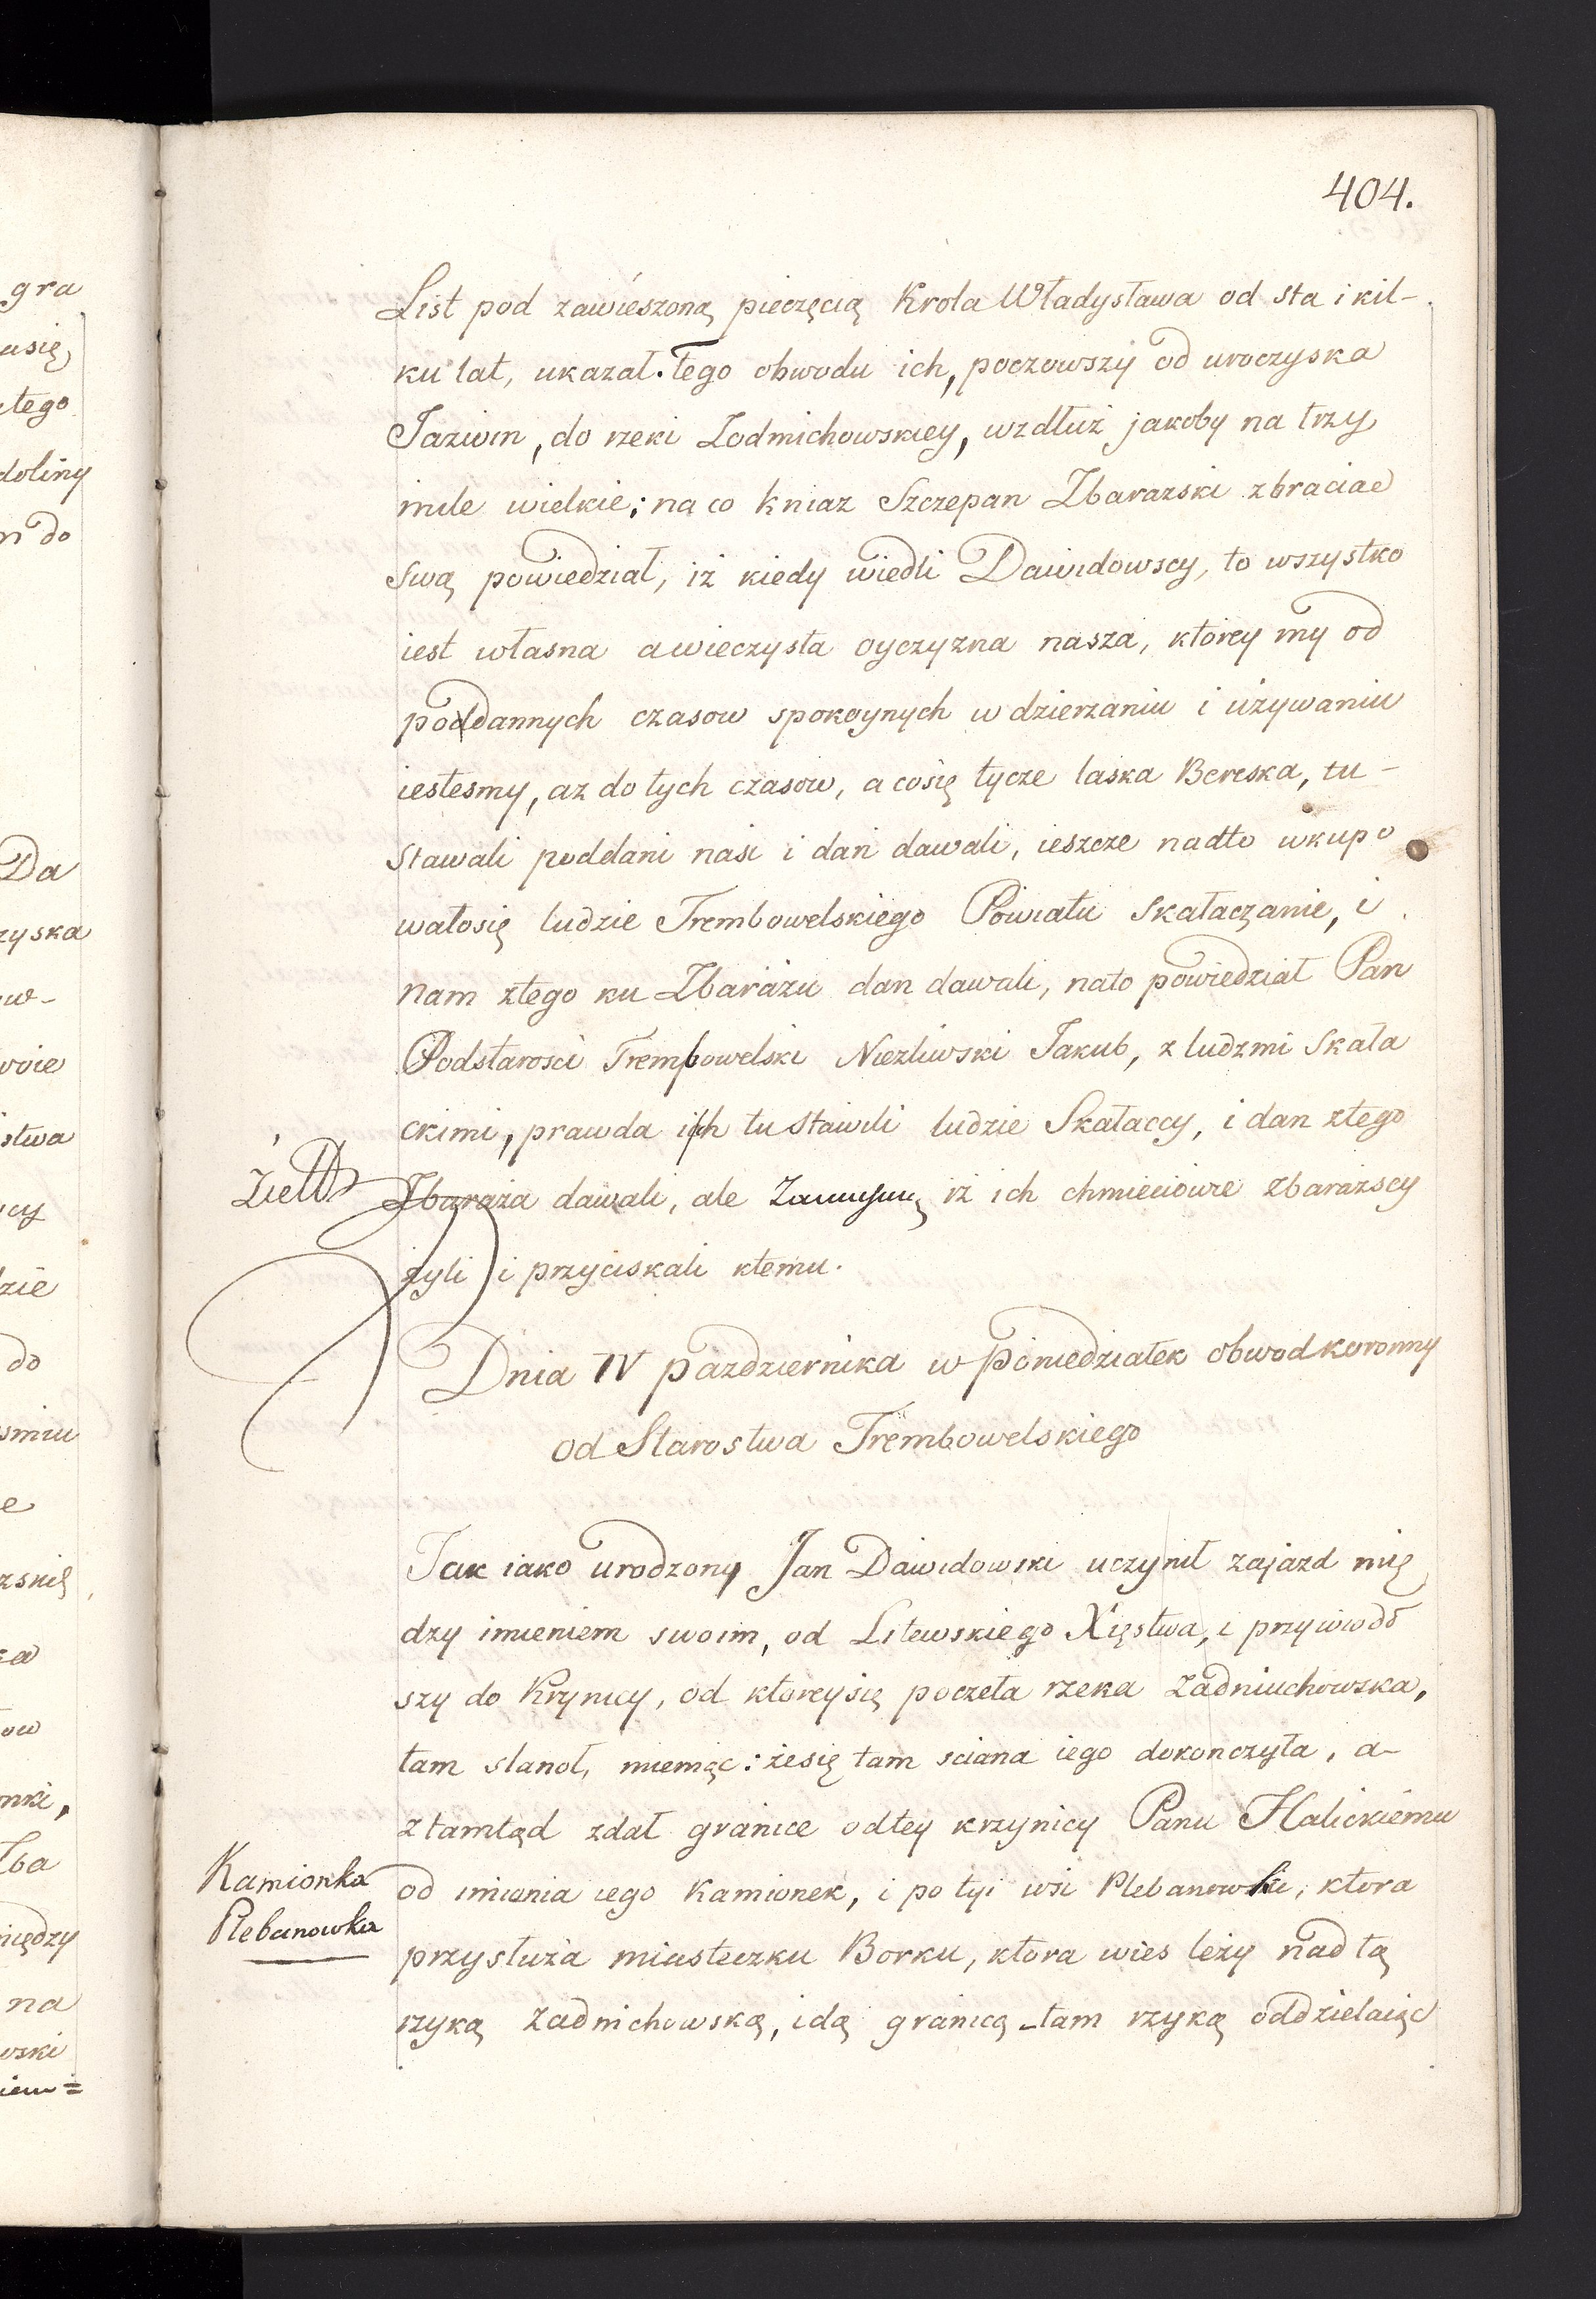 404.
List pod zawieszoną pieczęcią Krola Władysława od sta i kil-
ku lat, ukazał. tego obwodu ich, poczowszy od uroczyska
Jaziwin, do rzeki Zodmichowskiey, wzdłuż jakoby na trzy
mile wielkie; na co kniaz Szczepan Zbarazski zbraciae
swą powiedział, iż kiedy wiedli Dawidowscy, to wszystko
iest własna awieczysta oyczyzna nasza, ktorey my od
poddannych czasow spokoynych w dzierzaniu i używaniu
iestesmy, az do tych czasow, a cosię tycze laska Bereska, tu-
stawali poddani nasi i dań dawali, ieszcze nadto wkupo
wałosię ludzie Trembowelskiego Powiatu Skałaczanie, i
nam ztego ku Zbarażu dan dawali, nato powiedział Pan
Podstarosci Trembowelski Niezliwski Jakub, z ludzmi Skała
ckimi, prawda ich tu stawili ludzie Skałaccy, i dan ztego
Zbaraża dawali, ale iż ich chmieciowie zbarazscy
żyli i przyciskali ktemu.
Dnia IV pazdziernika w poniedziałek obwod koronny
od Starostwa Trembowelskiego
Jak iako urodzony Jan Dawidowski uczynił zajazd mię
dzy imieniem swoim, od Litewskiego Xięstwa, i przywiodł
szy do Krynicy, od ktoreysię poczeła rzeka Zadniuchowska,
tam stanoł, mieniąc: żesię tam sciana iego dokonczyła, a-
ztamtąd zdał granice odtey krzynicy Panu Halickiemu
Kamionka
od imiania iego Kamionek, i po tyi wsi Plebanowki, ktora
Plebanowka
przysłuża miasteczku Borku, ktora wies leży nad tą
rzyką Zadnichowską, idą granicą tam rzyką oddzielaiąc